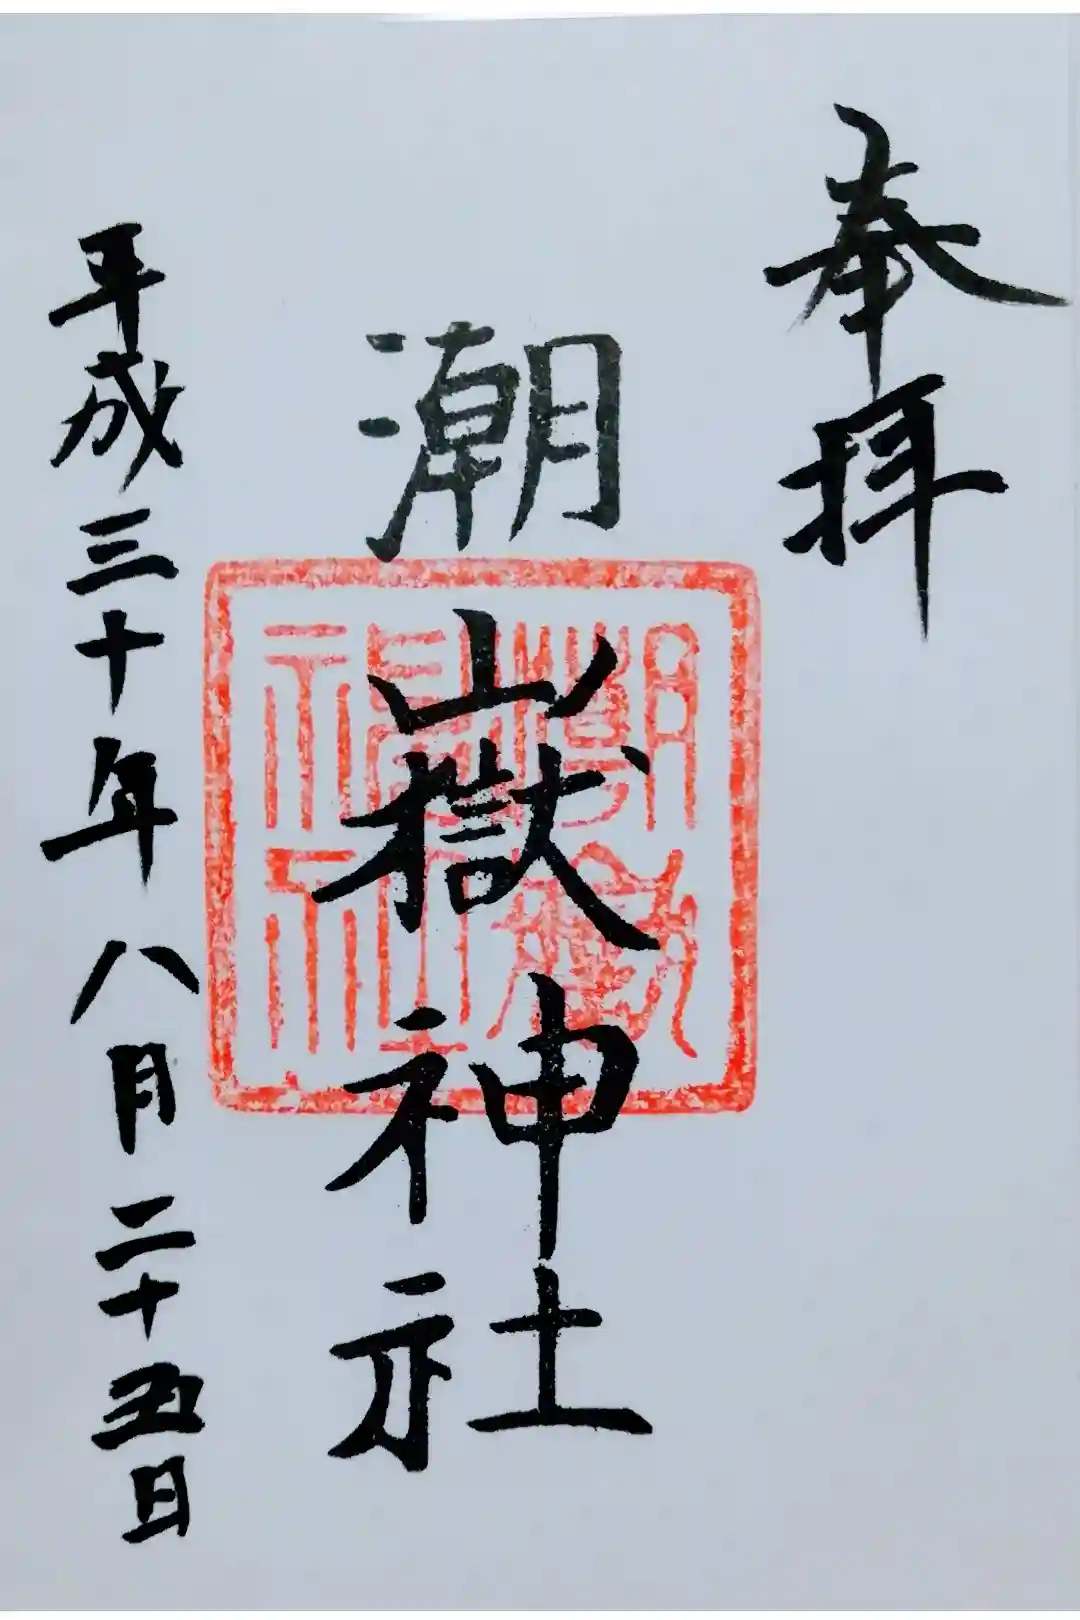 奉拝
潮嶽神社
平成三十年八月二十五日